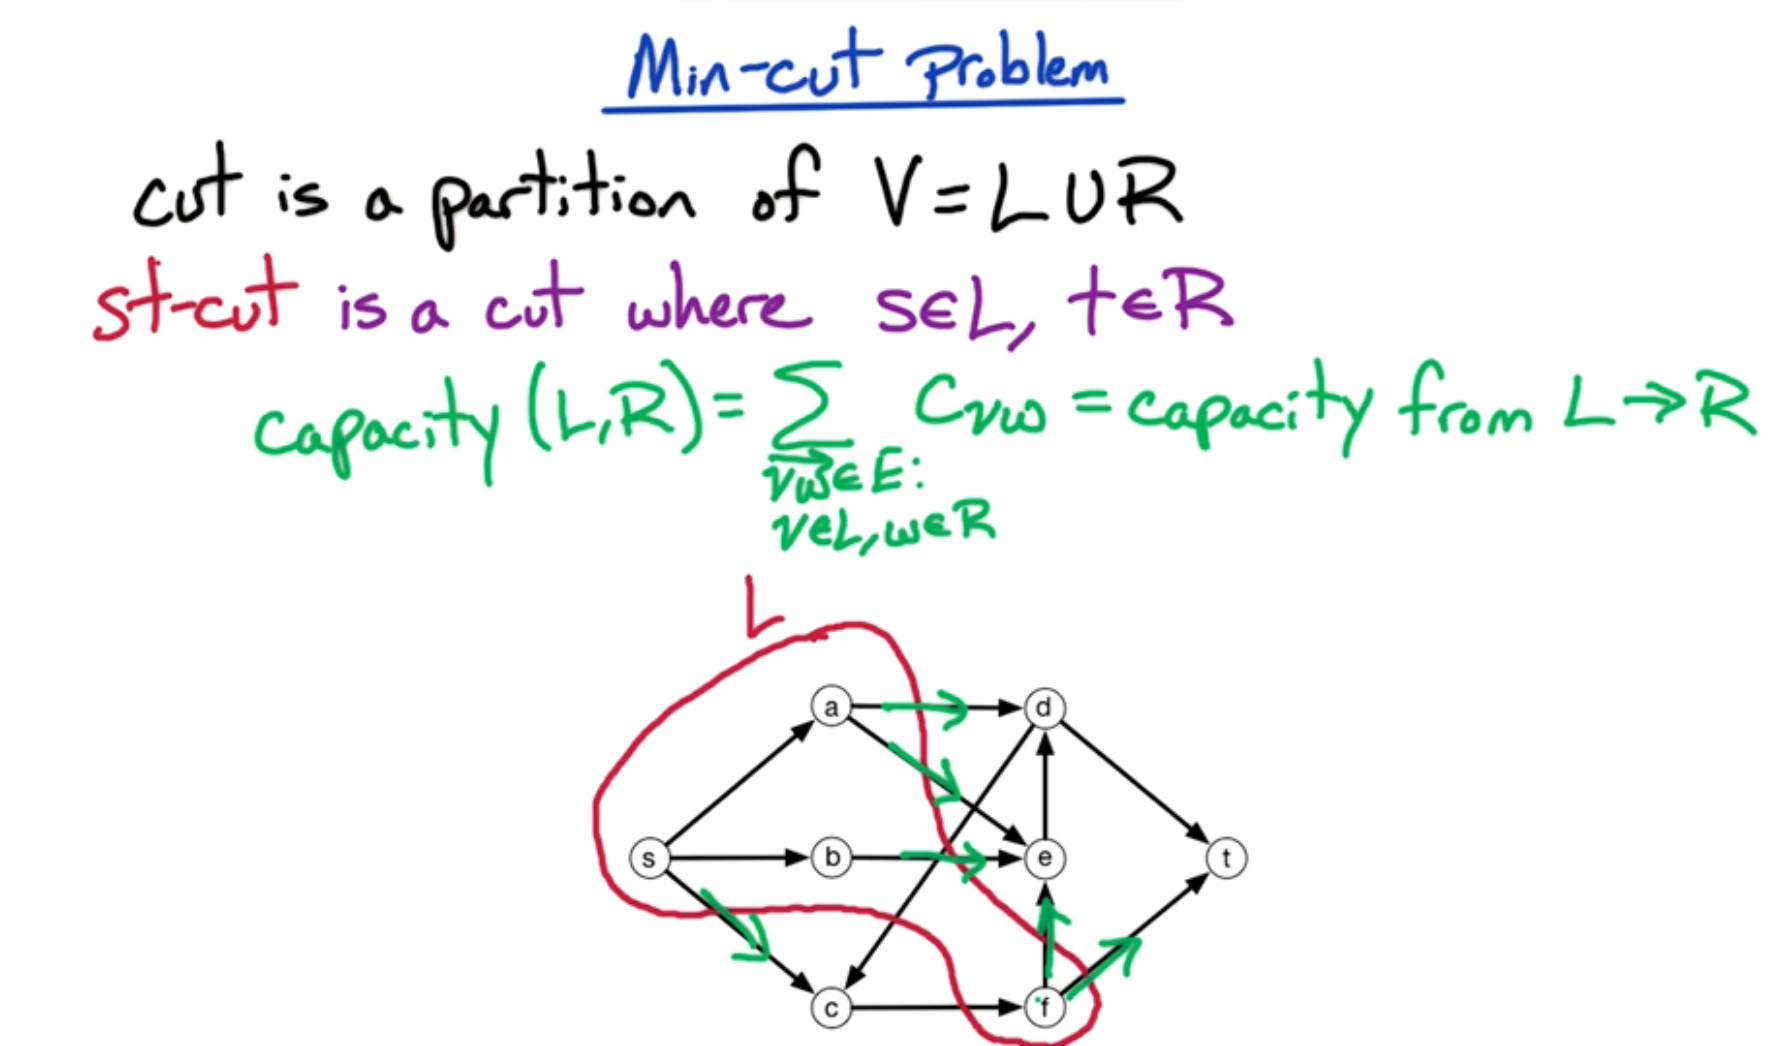 Min-cut Problem
cut is a partition of V = L ∪ R
st-cut is a cut where s∈L, t∈R
capacity (L,R) = ∑ Cvw = capacity from L → R
vw∈E:
v∈L, w∈R
L
a d
s b e t
c f